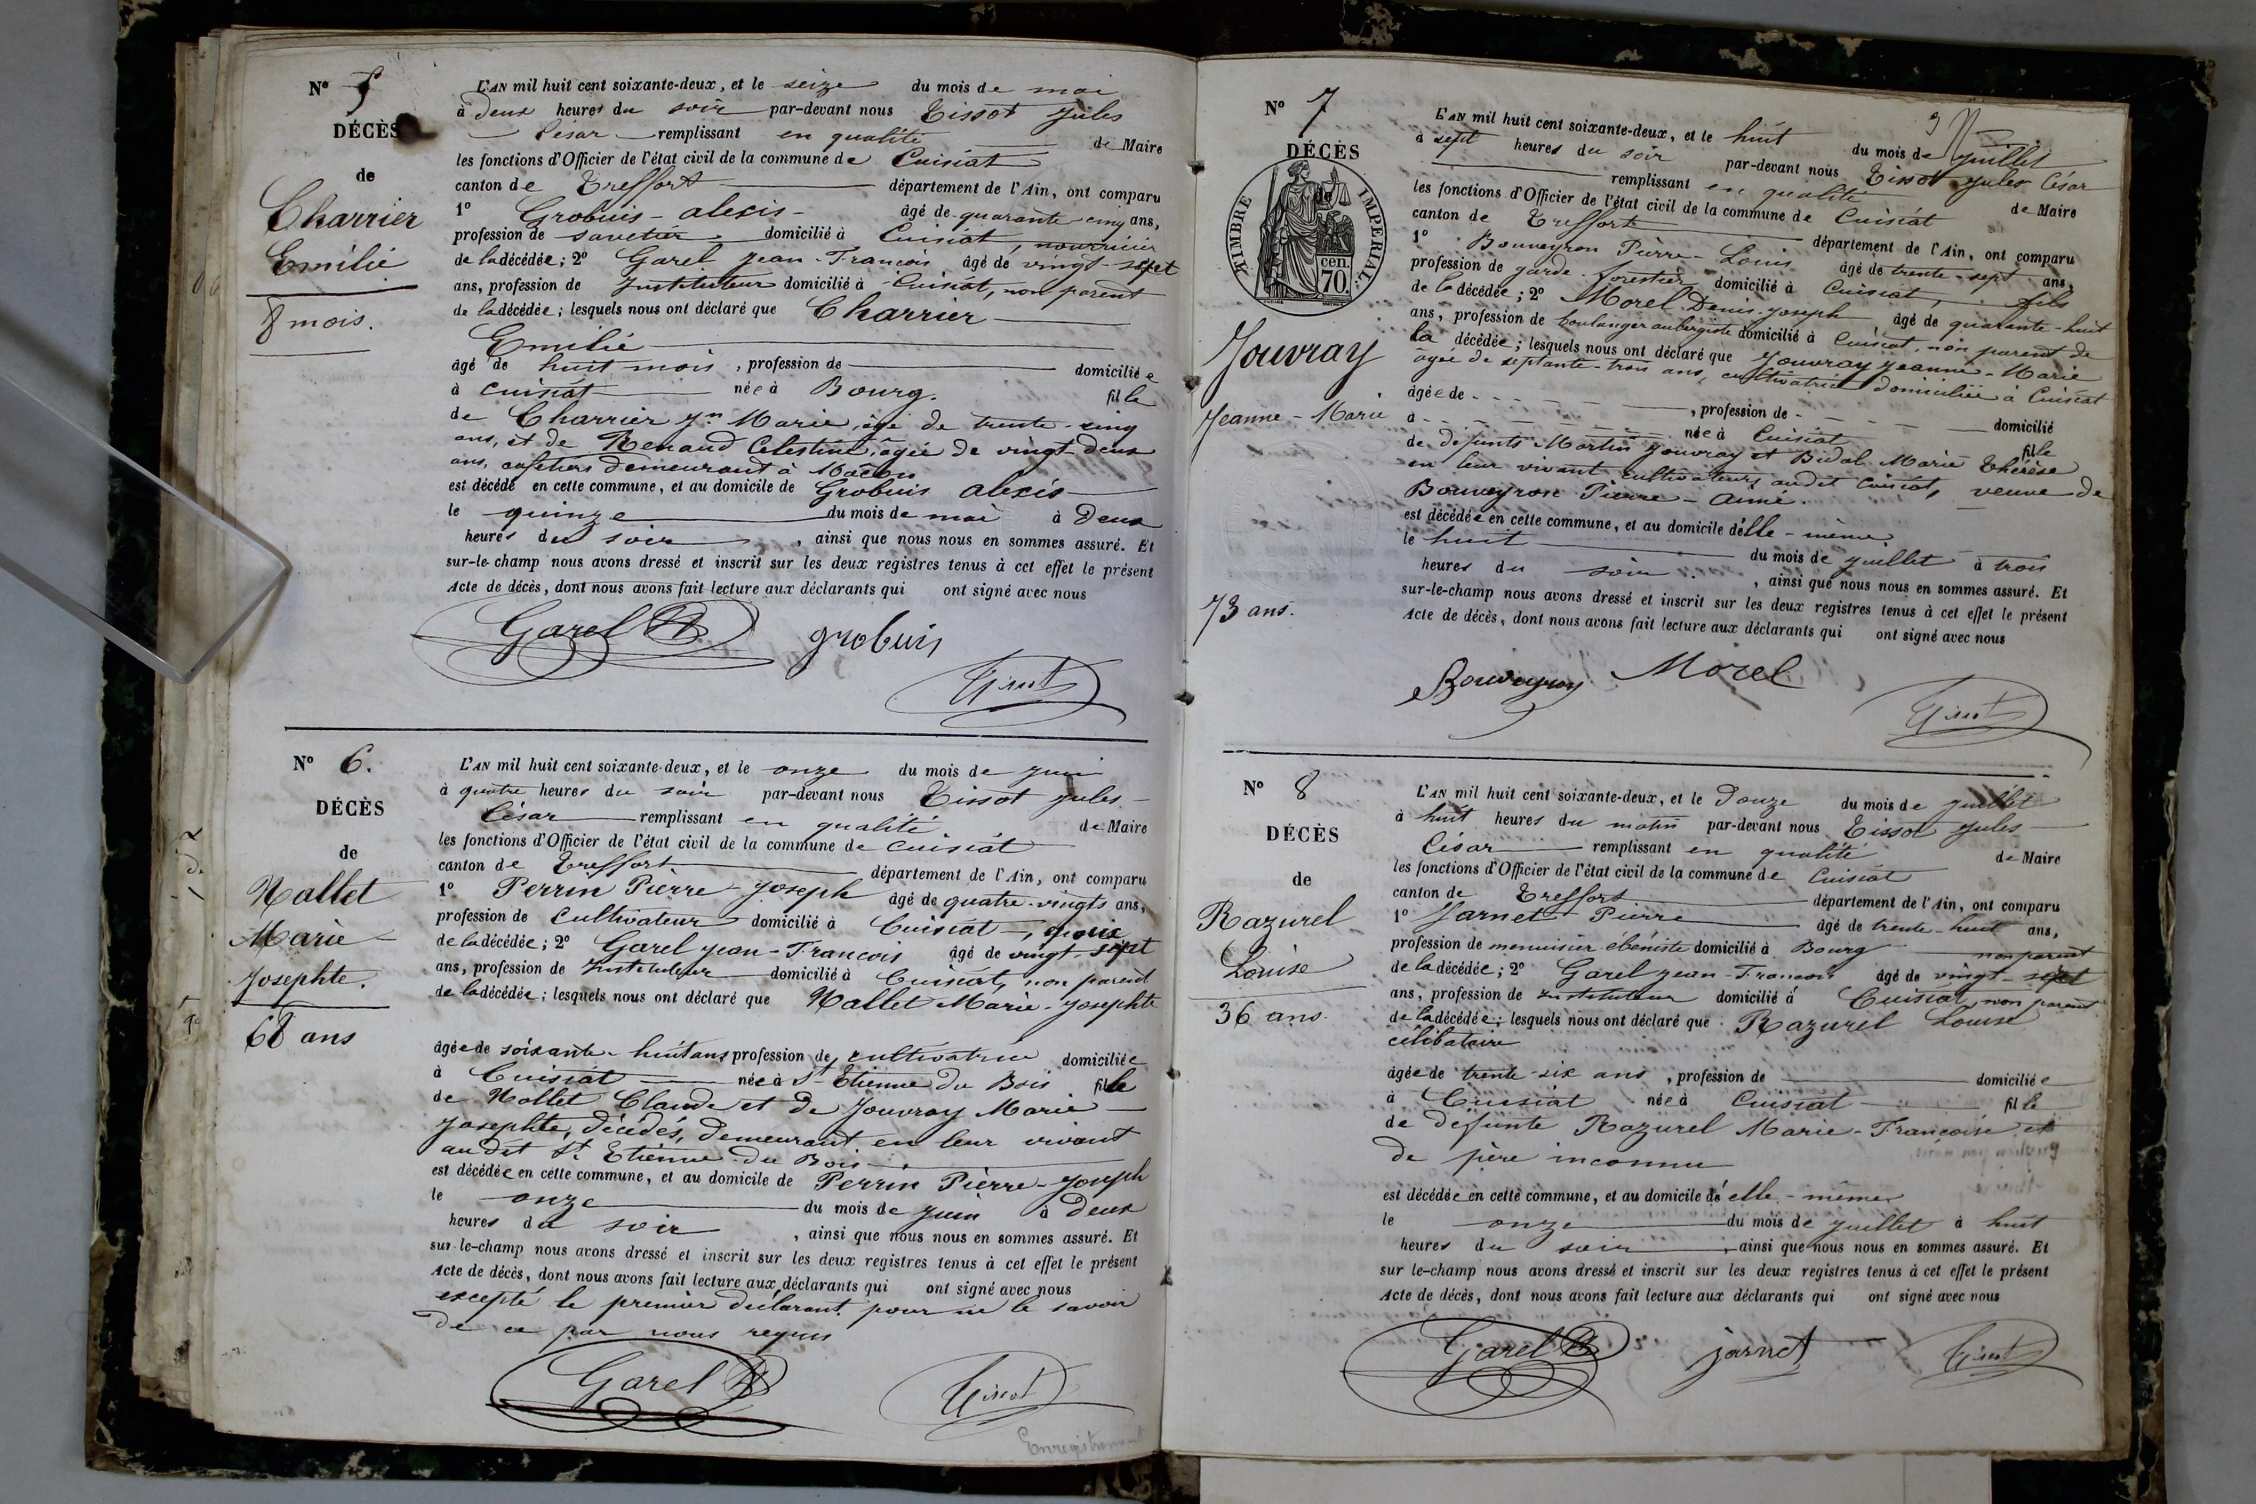 Nº 5
DÉCÈS
de
Charrier
Emilie
8 mois.
L'AN mil huit cent soixante-deux, et le seize du mois de mai
à deux heures du soir par-devant nous Tissot Jules
César remplissant en qualité de Maire
les fonctions d'Officier de l'état civil de la commune de Cuisiat
canton de Treffort département de l'Ain, ont comparu
1º Grobuis - alexis - âgé de quarante cinq ans,
profession de savetier domicilié à Cuisiat, nourricier
de la décédée; 2º Garel Jean-François âgé de vingt-sept
ans, profession de Instituteur domicilié à Cuisiat, non parent
de la décédée; lesquels nous ont déclaré que Charrier
Emilie
âgé de huit mois, profession de domiciliée
à cuisiat née à Bourg. fille
de Charrier Jn Marie, âgé de trente-cinq
ans, et de Renaud Celestine, âgée de vingt-deux
ans, cafetiers demeurant à Macon
est décédé en cette commune, et au domicile de Grobuis alexis
le quinze du mois de mai à deux
heures du soir, ainsi que nous nous en sommes assuré. Et
sur-le-champ nous avons dressé et inscrit sur les deux registres tenus à cet effet le présent
Acte de décès, dont nous avons fait lecture aux déclarants qui ont signé avec nous
Garel grobuis
Tissot
Nº 6.
DÉCÈS
de
Nallet
Marie
Josephte.
68 ans
L'AN mil huit cent soixante-deux, et le onze du mois de juin
à quatre heures du soir par-devant nous Tissot Jules-
César remplissant en qualité de Maire
les fonctions d'Officier de l'état civil de la commune de Cuisiat
canton de Treffort département de l'Ain, ont comparu
1º Perrin Pierre-Joseph âgé de quatre-vingts ans,
profession de Cultivateur domicilié à Cuisiat,
de la décédée; 2º Garel Jean-François âgé de vingt-sept
ans, profession de Instituteur domicilié à Cuisiat, non parent
de la décédée; lesquels nous ont déclaré que Nallet Marie-Josephte
âgée de soixante-huit ans profession de cultivatrice domiciliée
à Cuisiat née à St Etienne du Bois fille
de Nallet Claude et de Jouvray Marie
Josephte, décédés, demeurant en leur vivant
au dit St Etienne du Bois
est décédée en cette commune, et au domicile de Perrin Pierre-Joseph
le onze du mois de juin à deux
heures du soir, ainsi que nous nous en sommes assuré. Et
sur-le-champ nous avons dressé et inscrit sur les deux registres tenus à cet effet le présent
Acte de décès, dont nous avons fait lecture aux déclarants qui ont signé avec nous
excepté le premier déclarant pour ne le savoir
de ce par nous requis
Garel Tissot
Enregistrement
Nº 7
DÉCÈS
de
TIMBRE IMPÉRIAL
70. cen.
Jouvray
Jeanne-Marie
73 ans.
L'AN mil huit cent soixante-deux, et le huit du mois de juillet
à sept heures du soir par-devant nous Tissot Jules César
remplissant en qualité de Maire
les fonctions d'Officier de l'état civil de la commune de Cuisiat
canton de Treffort département de l'Ain, ont comparu
1º Bouveyron Pierre-Louis âgé de trente-sept ans,
profession de garde-forestier domicilié à Cuisiat, fils
de la décédée; 2º Morel Denis-Joseph âgé de quarante-huit
ans, profession de boulanger aubergiste domicilié à Cuisiat, non parent de
la décédée; lesquels nous ont déclaré que Jouvray Jeanne-Marie
âgée de septante-trois ans, cultivatrice domiciliée à Cuisiat
âgée de , profession de domicilié
à née à Cuisiat fille
de défunts Martin Jouvray et Bidal Marie Thérèse
en leur vivant cultivateurs audit Cuisiat, veuve de
Bouveyron Pierre-Aimé.
est décédée en cette commune, et au domicile d'elle-même
le huit du mois de juillet à trois
heures du soir, ainsi que nous nous en sommes assuré. Et
sur-le-champ nous avons dressé et inscrit sur les deux registres tenus à cet effet le présent
Acte de décès, dont nous avons fait lecture aux déclarants qui ont signé avec nous
Bouveyron Morel
Tissot
Nº 8
DÉCÈS
de
Razurel
Louise
36 ans.
L'AN mil huit cent soixante-deux, et le Douze du mois de juillet
à huit heures du matin par-devant nous Tissot Jules
César remplissant en qualité de Maire
les fonctions d'Officier de l'état civil de la commune de Cuisiat
canton de Treffort département de l'Ain, ont comparu
1º Jarnet Pierre âgé de trente-huit ans,
profession de menuisier ébéniste domicilié à Bourg non parent
de la décédée; 2º Garel Jean-François âgé de vingt-sept
ans, profession de Instituteur domicilié à Cuisiat, non parent
de la décédée; lesquels nous ont déclaré que Razurel Louise
célibataire
âgée de trente-six ans, profession de domiciliée
à Cuisiat née à Cuisiat fille
de défunte Razurel Marie-Françoise et
de père inconnu
est décédée en cette commune, et au domicile d'elle-même
le onze du mois de juillet à huit
heures du soir, ainsi que nous nous en sommes assuré. Et
sur le-champ nous avons dressé et inscrit sur les deux registres tenus à cet effet le présent
Acte de décès, dont nous avons fait lecture aux déclarants qui ont signé avec nous
Garel jarnet Tissot